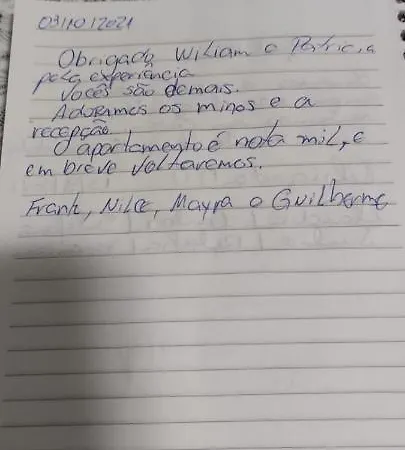 03/10/2021
Obrigado Wiliam e Patricia
pela experiência
Vocês são demais.
Adoramos os mimos e a
recepção.
O apartamento é nota mil, e
em breve voltaremos.
Frank, Nilce, Mayra e Guilherme